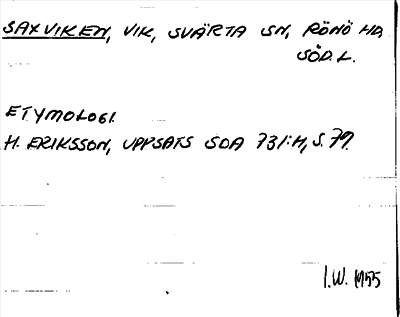 SAXVIKEN, VIK, SVÄRTA SN, RÖNÖ HD,
SÖD. L.
ETYMOLOGI.
H. ERIKSSON, UPPSATS SOA 731:H, S. 77.
I.W. 1955